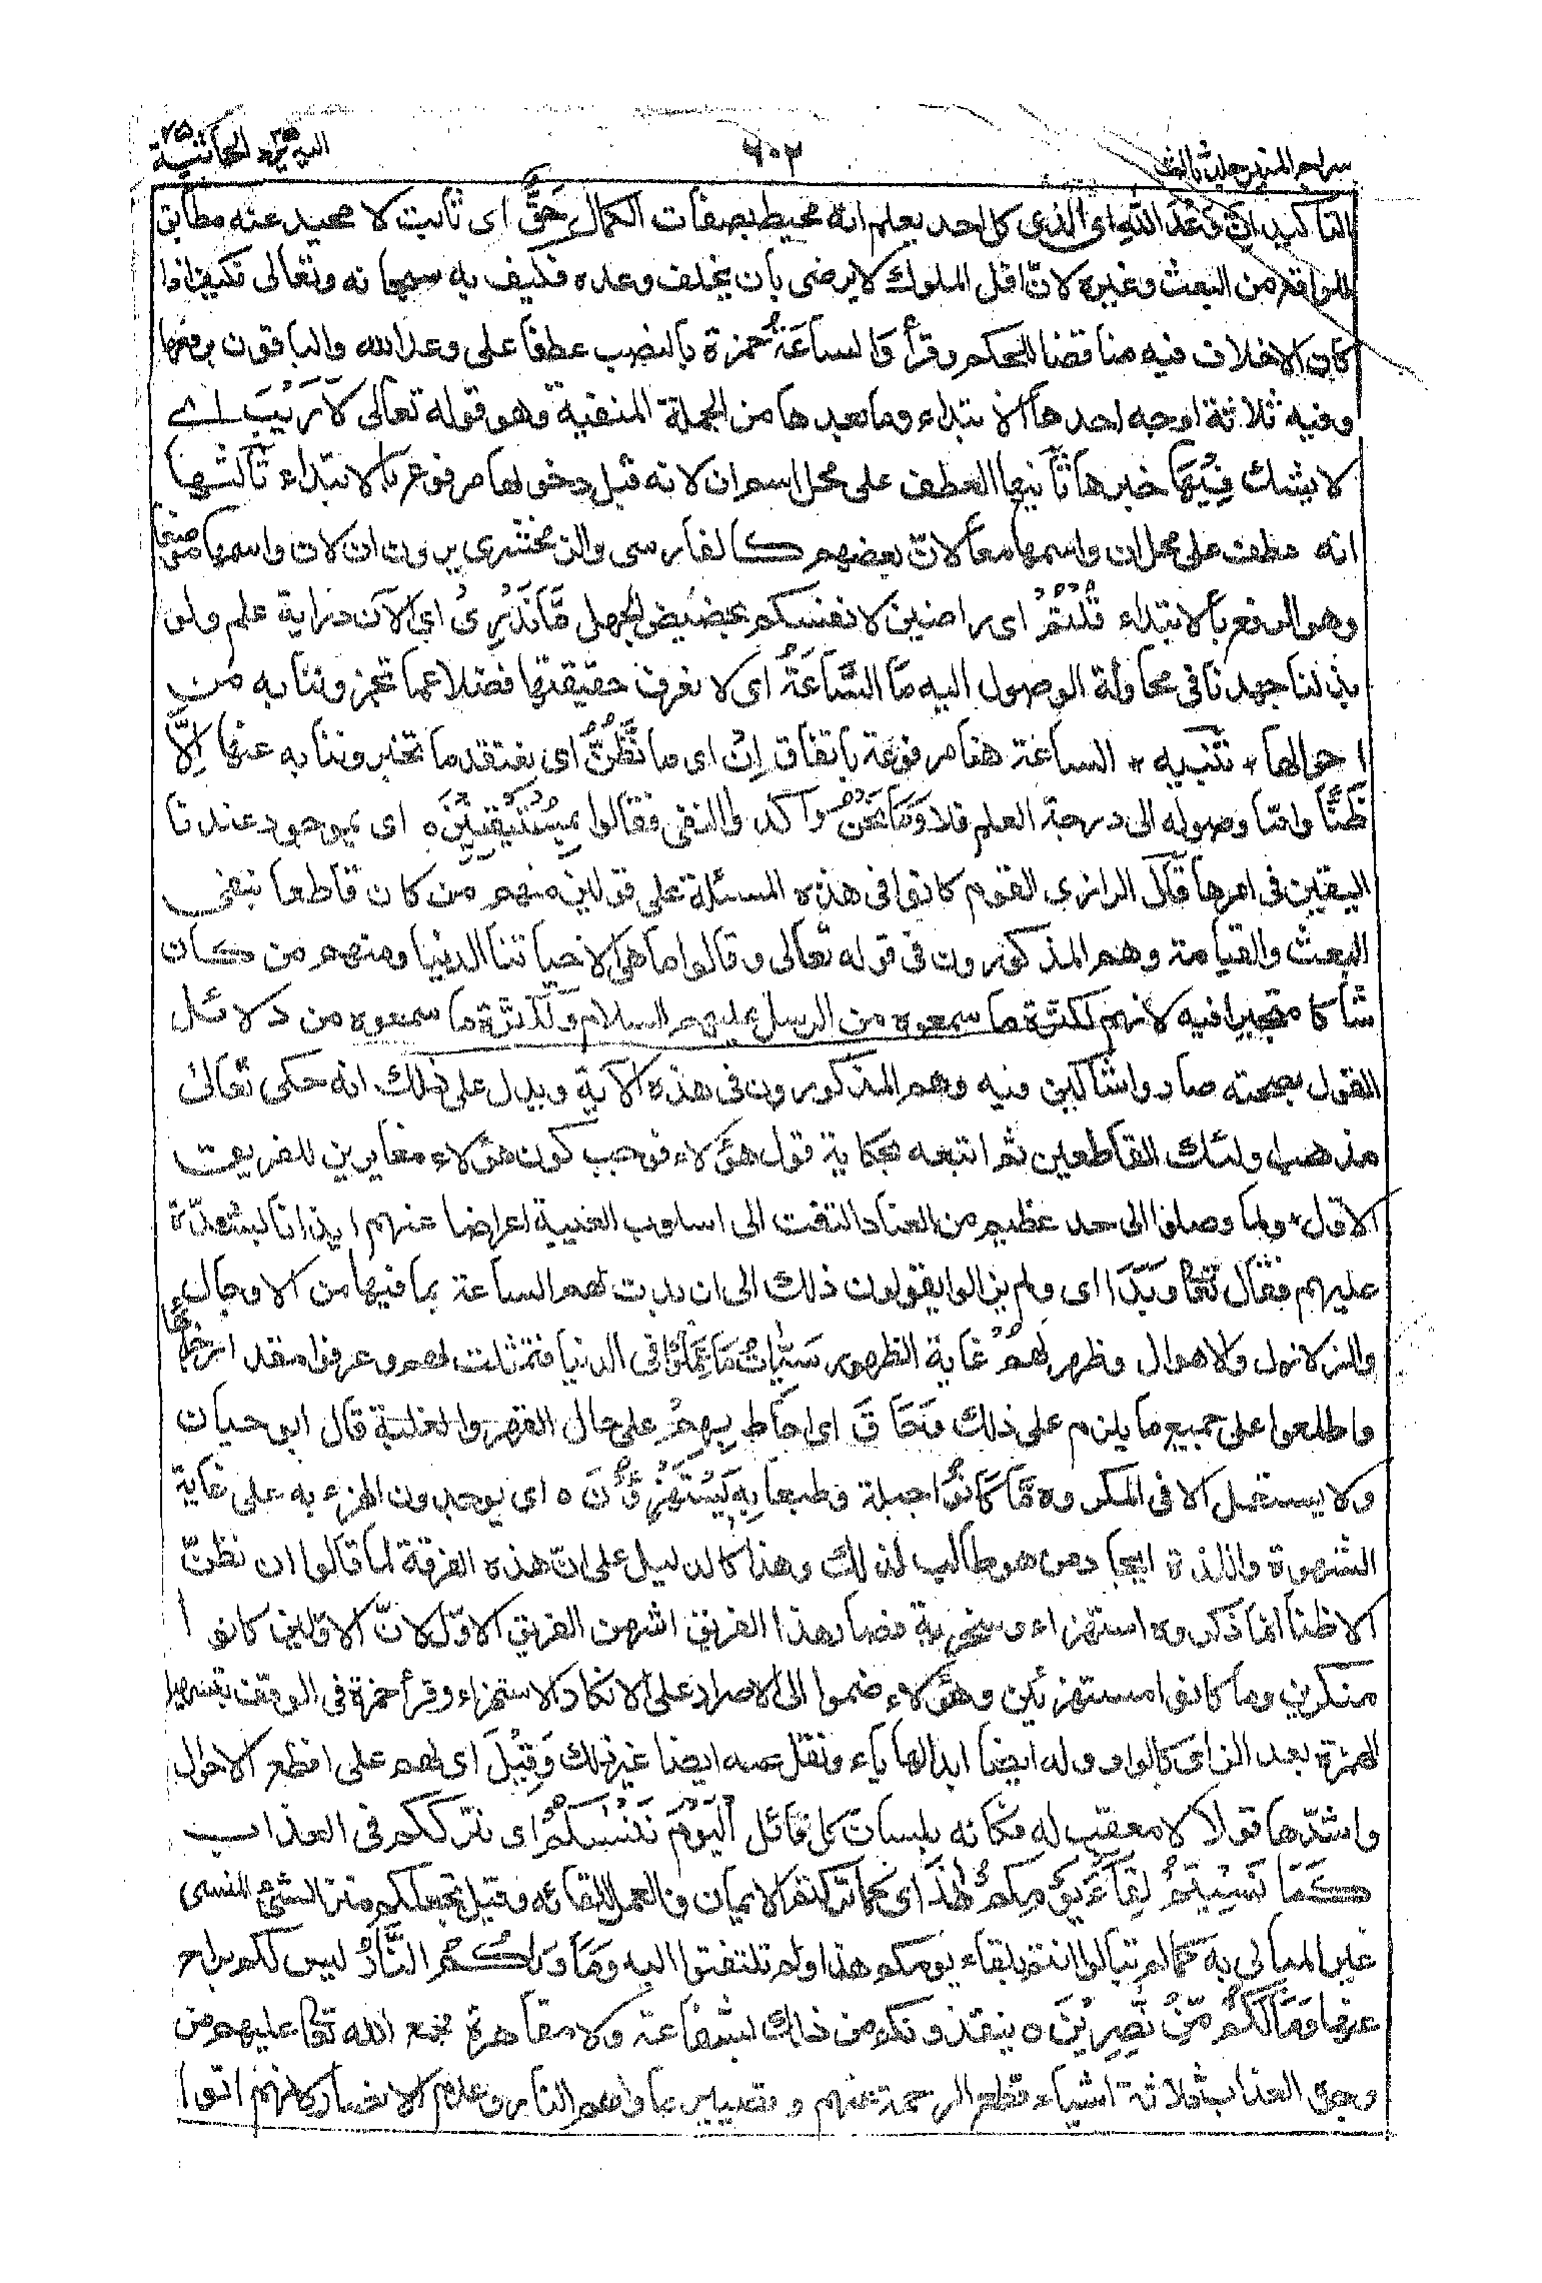 سراج المنير جلد ثالث ٦٠٢ اليه يرد ٢٥ الجاثية ٤٥
التأكيد ان وعد الله اى الذى كل احد يعلم انه محيط بصفات الكمال حَقٌّ اى ثابت لا محيد عنه مطابق
للواقع من البعث وغيره لانّ اقل الملوك لا يرضى بان يخلف وعده فكيف به سبحانه وتعالى فكيف اذا
كان الاخلاف فيه مناقضا للحكم وقرأ وَالساعَةُ حمزة بالنصب عطفا على وعد الله والباقون برفعها
وفيه ثلاثة اوجه احدها الابتداء وما بعدها من الجملة المنفية وهو قوله تعالى لَا رَيْبَ اے
لا شك فِيْهَا خبرها ثانيها العطف على محل اسم ان لانه قبل دخولها مرفوع بالابتداء ثالثها
انه عطف على محل ان واسمها معا لانّ بعضهم كالفارسى والزمخشرى يرون ان لان واسمها موضعا
وهو الرفع بالابتداء قُلْتُمْ اى راضين لانفسكم بحضيض الجهل مَّا نَدْرِىْ اى الآن دراية علم ولو
بذلنا جهدنا فى محاولة الوصول اليه مَا السَّاعَةُ اى لا نعرف حقيقتها فضلا عما تخبروننا به من
احوالها * تنبيه * الساعة هنا مرفوعة باتفاق اِنْ اى ما نَّظُنُّ اى نعتقد ما تخبروننا به عنها اِلَّا
ظَنًّا وامّا وصوله الى درجة العلم فلا وَمَا نَحْنُ واكدوا النفى فقالوا بِمُسْتَيْقِنِيْنَ ه اى بموجود عندنا
اليقين فى امرها قال الرازى القوم كانوا فى هذه المسئلة على قولين منهم من كان قاطعا بنفى
البعث والقيامة وهم المذكورون فى قوله تعالى وقالوا ما هى الا حياتنا الدنيا ومنهم من كان
شاكا متحيرا فيه لانهم لكثرة ما سمعوه من الرسل عليهم السلام ولكثرة ما سمعوه من دلائل
القول بصحته صاروا شاكين فيه وهم المذكورون فى هذه الآية ويدل على ذلك انه حكى تعالى
مذهب اولئك القاطعين ثم اتبعه بحكاية قول هؤلاء فوجب كون هؤلاء مغايرين للفريق
الاول * ولما وصلوا الى حد عظيم من العناد التفت الى اسلوب الغيبة اعراضا عنهم ايذانا بشدّة
عليهم فقال تعا وَبَدَا اى ولم يزالوا يقولون ذلك الى ان بدت لهم الساعة بما فيها من الاوجال
والزلازل والاهوال وظهر لَهُمْ غاية الظهور سَيِّاٰتُ مَا عَمِلُوْا فى الدنيا فتمثلت لهم وعرفوا مقدار جزائها
واطلعوا على جميع ما يلزم على ذلك وَحَاقَ اى احاط بِهِمْ على حال القهر والغلبة قال ابو حيان
ولا يستعمل الا فى المكروه مَّا كَانُوْا جبلة وطبعا بِهٖ يَسْتَهْزِءُوْنَ ه اى يوجدون الهزء به على غاية
الشهوة واللذة ايجاد من هو طالب لذلك وهذا كالدليل على انّ هذه الفرقة لما قالوا ان نظنّ
الا ظنا انما ذكروه استهزاء وسخرية فصار هذا الفريق اشر من الفريق الاوّل لانّ الاولين كانوا
منكرين وما كانوا مستهزئين وهؤلاء ضموا الى الاصرار على الانكار الاستهزاء وقرأ حمزة فى الوقف بتسهيل
الهمزة بعد الزاى كالواو وله ايضا ابدالها ياء ونقل عنه ايضا غير ذلك وَقِيْلَ اى لهم على افظع الاحوال
واشدّها قولا لا معقب له فكانه بلسان كل قائل اَلْيَوْمَ نَنْسٰكُمْ اى نترككم فى العذاب
كَمَا نَسِيْتُمْ لِقَآءَ يَوْمِكُمْ هٰذَا اى كما تركتم الايمان والعمل للقائه وقيل نجعلكم منزلة الشئ المنسى
غير المبالى به كما لم تبالوا انتم بلقاء يومكم هذا ولم تلتفتوا اليه وَمَاْوٰىكُمُ النَّارُ ليس لكم براح
عنها وَمَا لَكُمْ مِّنْ نّٰصِرِيْنَ ه ينقذونكم من ذلك بشفاعة ولا مقاهرة فجمع الله تعا عليهم من
وجوه العذاب ثلاثة اشياء قطع الرحمة عنهم وتصيير ماواهم النار وعدم الانصار لانهم اتوا